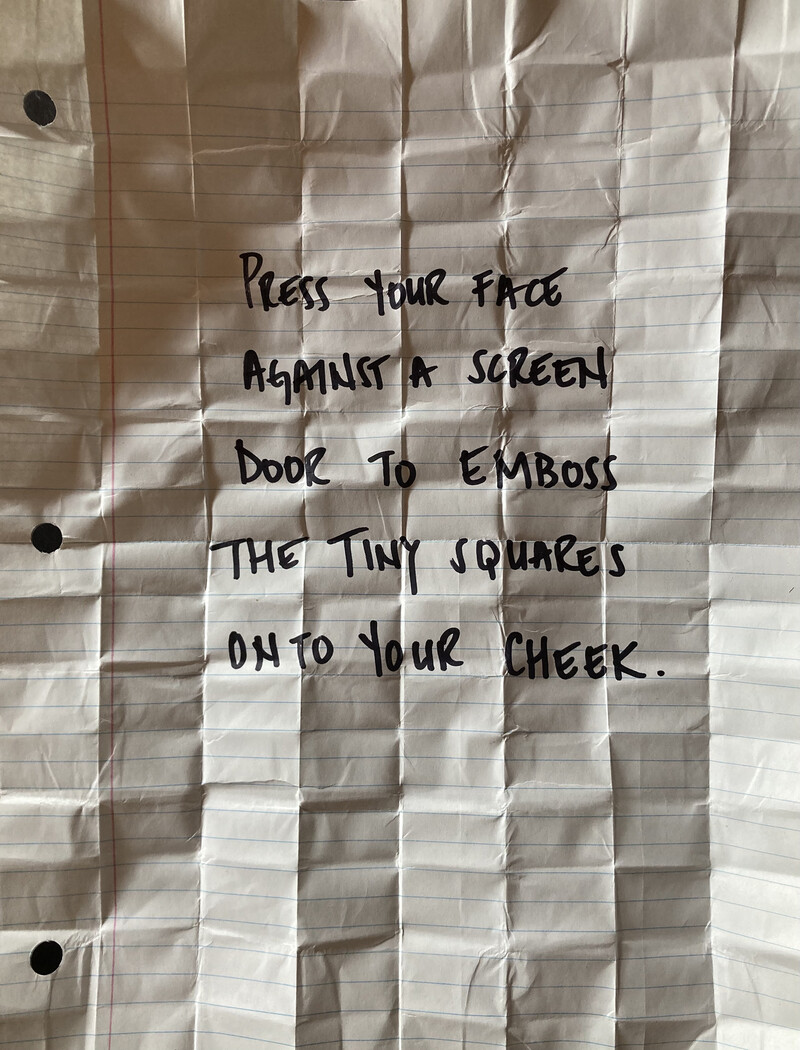 PRESS YOUR FACE
AGAINST A SCREEN
DOOR TO EMBOSS
THE TINY SQUARES
ONTO YOUR CHEEK.